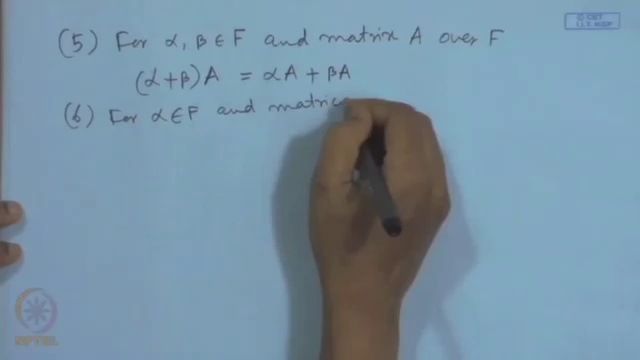 © CET
I.I.T. KGP
(5) For α, β ∈ F and matrix A over F
(α+β)A = αA + βA
(6) For α ∈ F and matrice
NPTEL